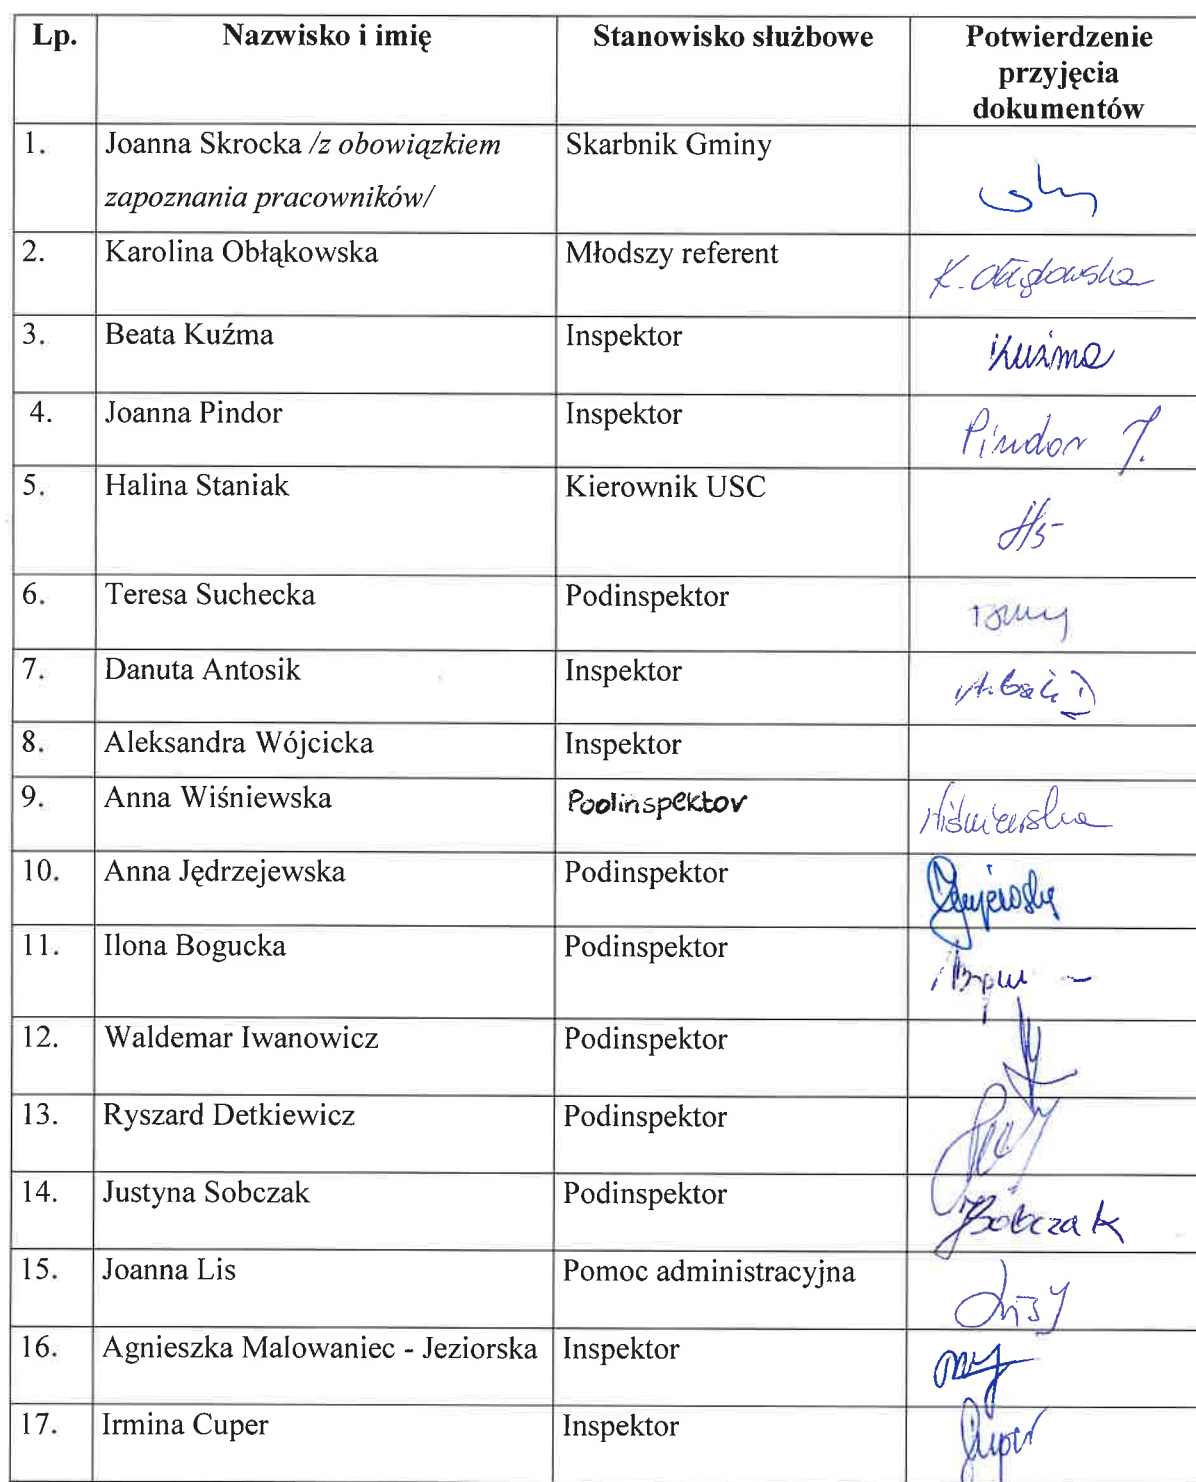 Lp. Nazwisko i imię Stanowisko służbowe Potwierdzenie
przyjęcia
dokumentów
1. Joanna Skrocka /z obowiązkiem Skarbnik Gminy
zapoznania pracowników/
2. Karolina Obłąkowska Młodszy referent
3. Beata Kuźma Inspektor Kuźma
4. Joanna Pindor Inspektor Pindor J.
5. Halina Staniak Kierownik USC
6. Teresa Suchecka Podinspektor
7. Danuta Antosik Inspektor
8. Aleksandra Wójcicka Inspektor
9. Anna Wiśniewska Podinspektor Wiśniewska
10. Anna Jędrzejewska Podinspektor
11. Ilona Bogucka Podinspektor
12. Waldemar Iwanowicz Podinspektor
13. Ryszard Detkiewicz Podinspektor
14. Justyna Sobczak Podinspektor JSobczak
15. Joanna Lis Pomoc administracyjna
16. Agnieszka Malowaniec - Jeziorska Inspektor
17. Irmina Cuper Inspektor Cuper